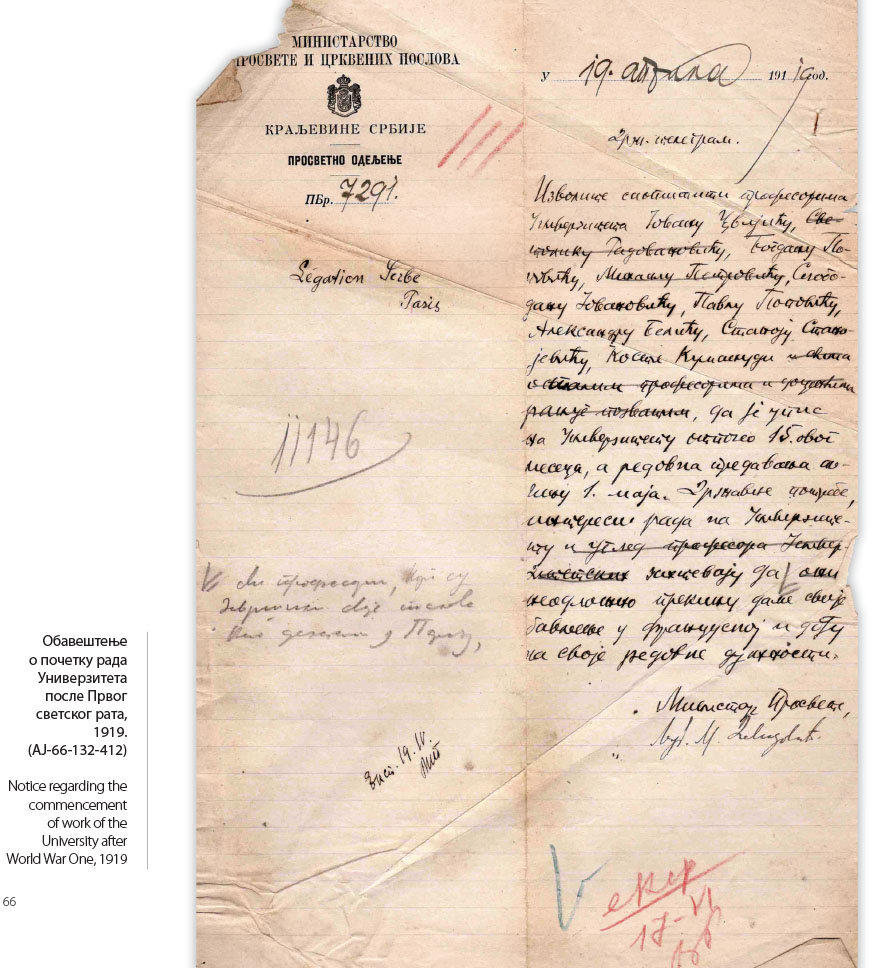 МИНИСТАРСТВО
ПРОСВЕТЕ И ЦРКВЕНИХ ПОСЛОВА
КРАЉЕВИНЕ СРБИЈЕ
ПРОСВЕТНО ОДЕЉЕЊЕ
ПБр. 7291.
У 19. априла 1919 год.
Légation Serbe
Paris
11146
Изволите саопштити професорима
Универзитета Јовану Цвијићу, Све-
толику Радовановићу, Богдану По-
повићу, Михаилу Петровићу, Слобо-
дану Јовановићу, Павлу Поповићу,
Александру Белићу, Станоју Стано-
јевићу, Кости Кумануди и
осталим професорима и доцентима
раније позваним, да је упис
на Универзитету отпочео 15. овог
месеца, а редовна предавања по-
чињу 1. маја. Државне потребе,
интереси рада на Универзите-
ту и углед професора Универ-
зитетских захтевају да они
неодложно прекину даље своје
бављење у Француској и дођу
на своје редовне дужности.
Министар Просвете,
Љуб. М. Давидовић.
ви професори, који су
19. IV.
17-VI
Обавештење
о почетку рада
Универзитета
после Првог
светског рата,
1919.
(AJ-66-132-412)
Notice regarding the
commencement
of work of the
University after
World War One, 1919
66